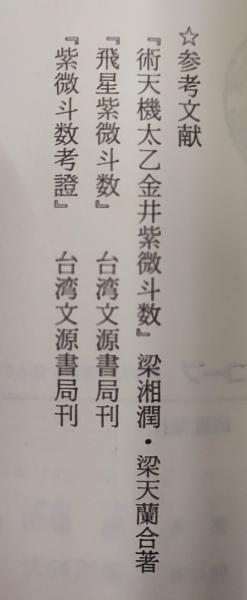 ☆参考文献
『術天機太乙金井紫微斗数』梁湘潤・梁天蘭合著
『飛星紫微斗数』　台湾文源書局刊
『紫微斗数考證』　台湾文源書局刊